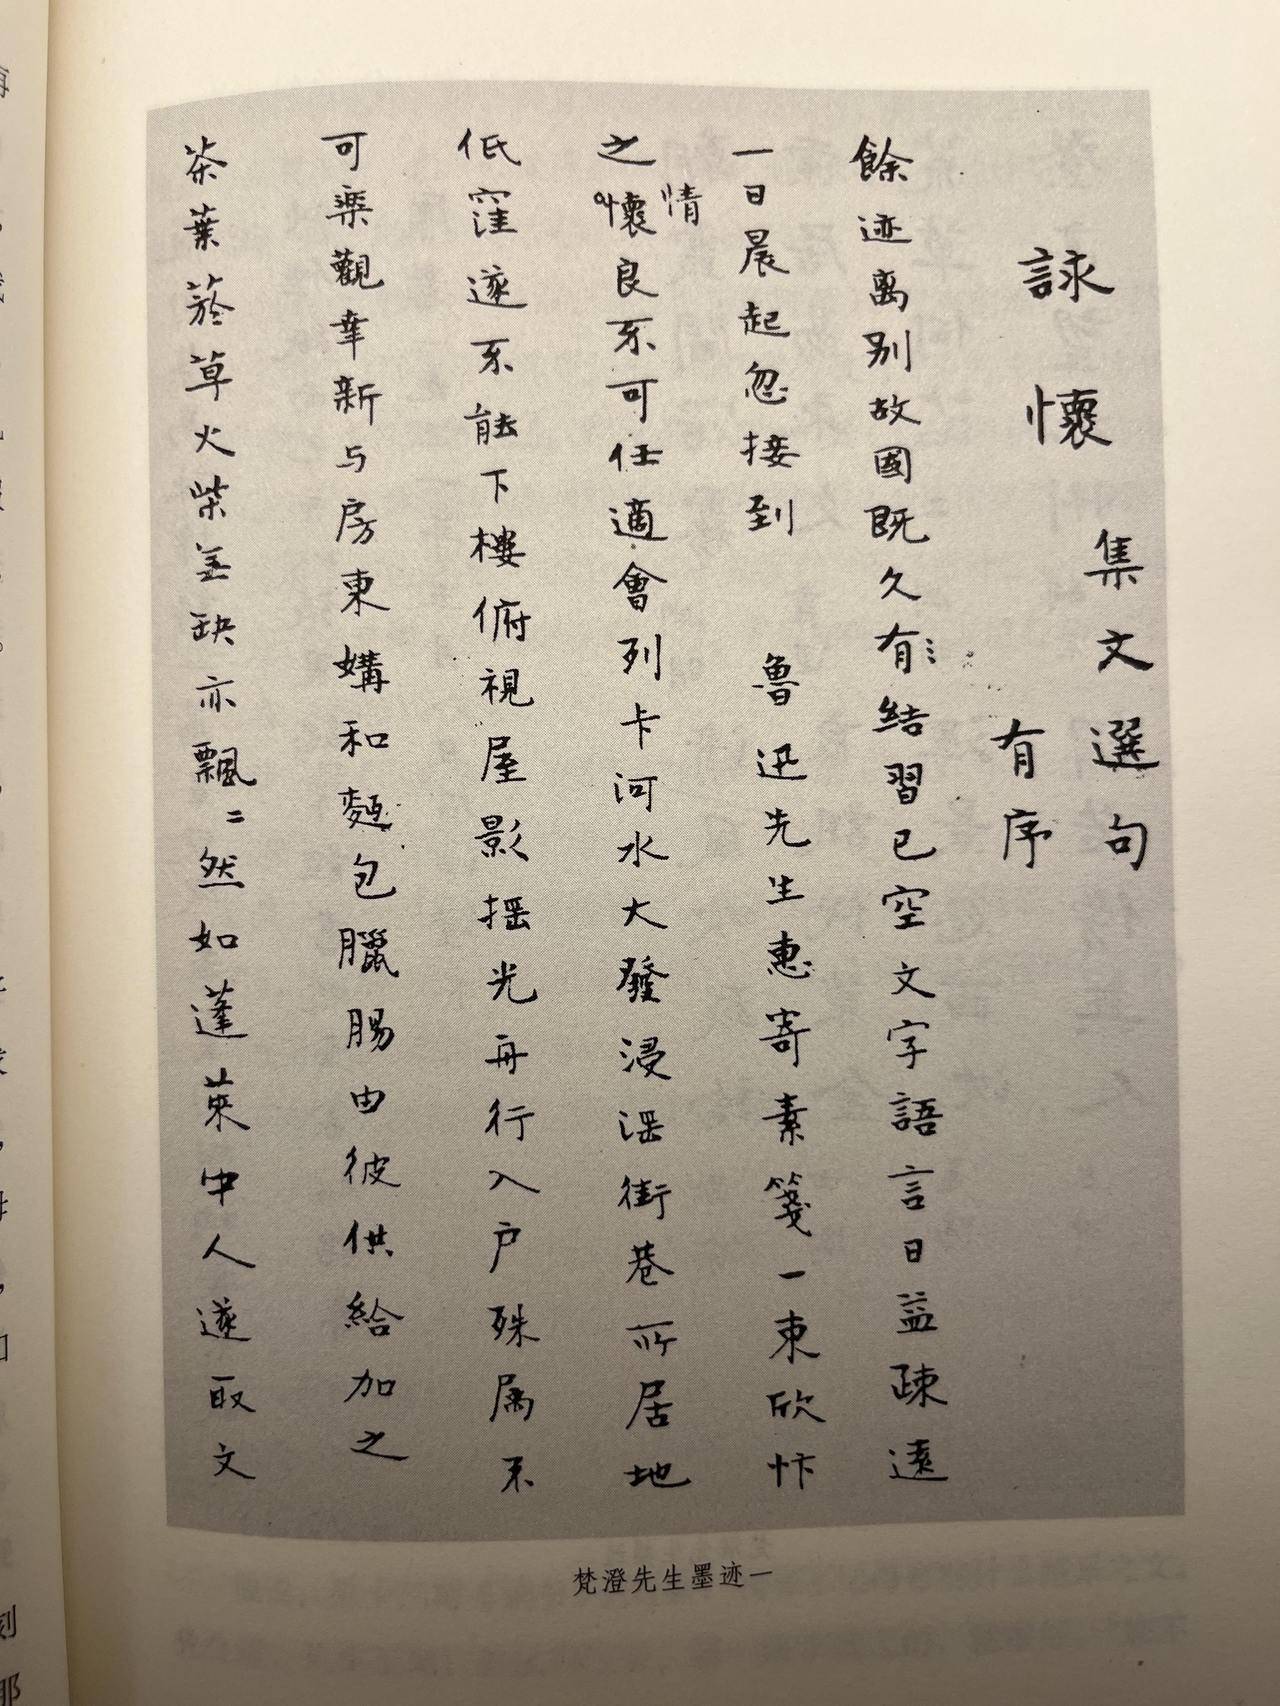 詠懷
集文選句
有序
餘迹离别故國既久有〻結習已空文字語言日益疎遠
一日晨起忽接到 魯迅先生惠寄素箋一束欣忭
之懷情良不可任適會列卡河水大發浸淫街巷所居地
低窪遂不能下樓俯視屋影摇光舟行入户殊属不
可樂觀幸新与房東媾和麵包臘腸由彼供給加之
茶葉菸草火柴並缺亦飄〻然如蓬萊中人遂取文
梵澄先生墨迹一